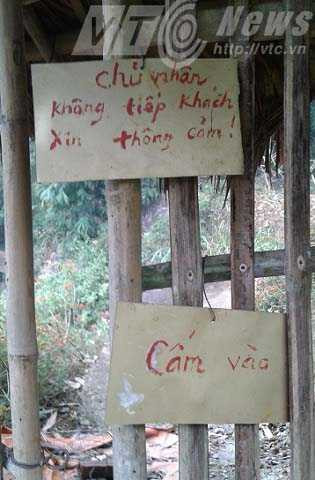 VTC News
http://vtc.vn
Chủ nhân
không tiếp khách
Xin thông cảm!
Cấm vào